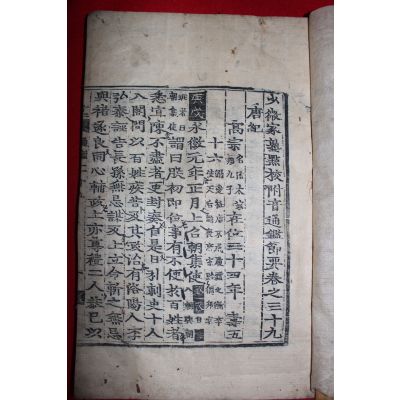 少微家塾點校附音通鑑節要卷之三十九
唐紀
高宗 名治太宗第九子 在位三十四年 壽五
十六
庚戌永徽元年正月上召朝集使
謂曰朕初即位事有不便於百姓者
悉宜陳不盡者更封奏自是日引刺史十人
入閤問以百姓疾苦及其政治有洛陽人李
弘泰誣告長孫無忌謀反上立命斬之無忌
與褚遂良同心輔政上亦尊禮二人恭己以